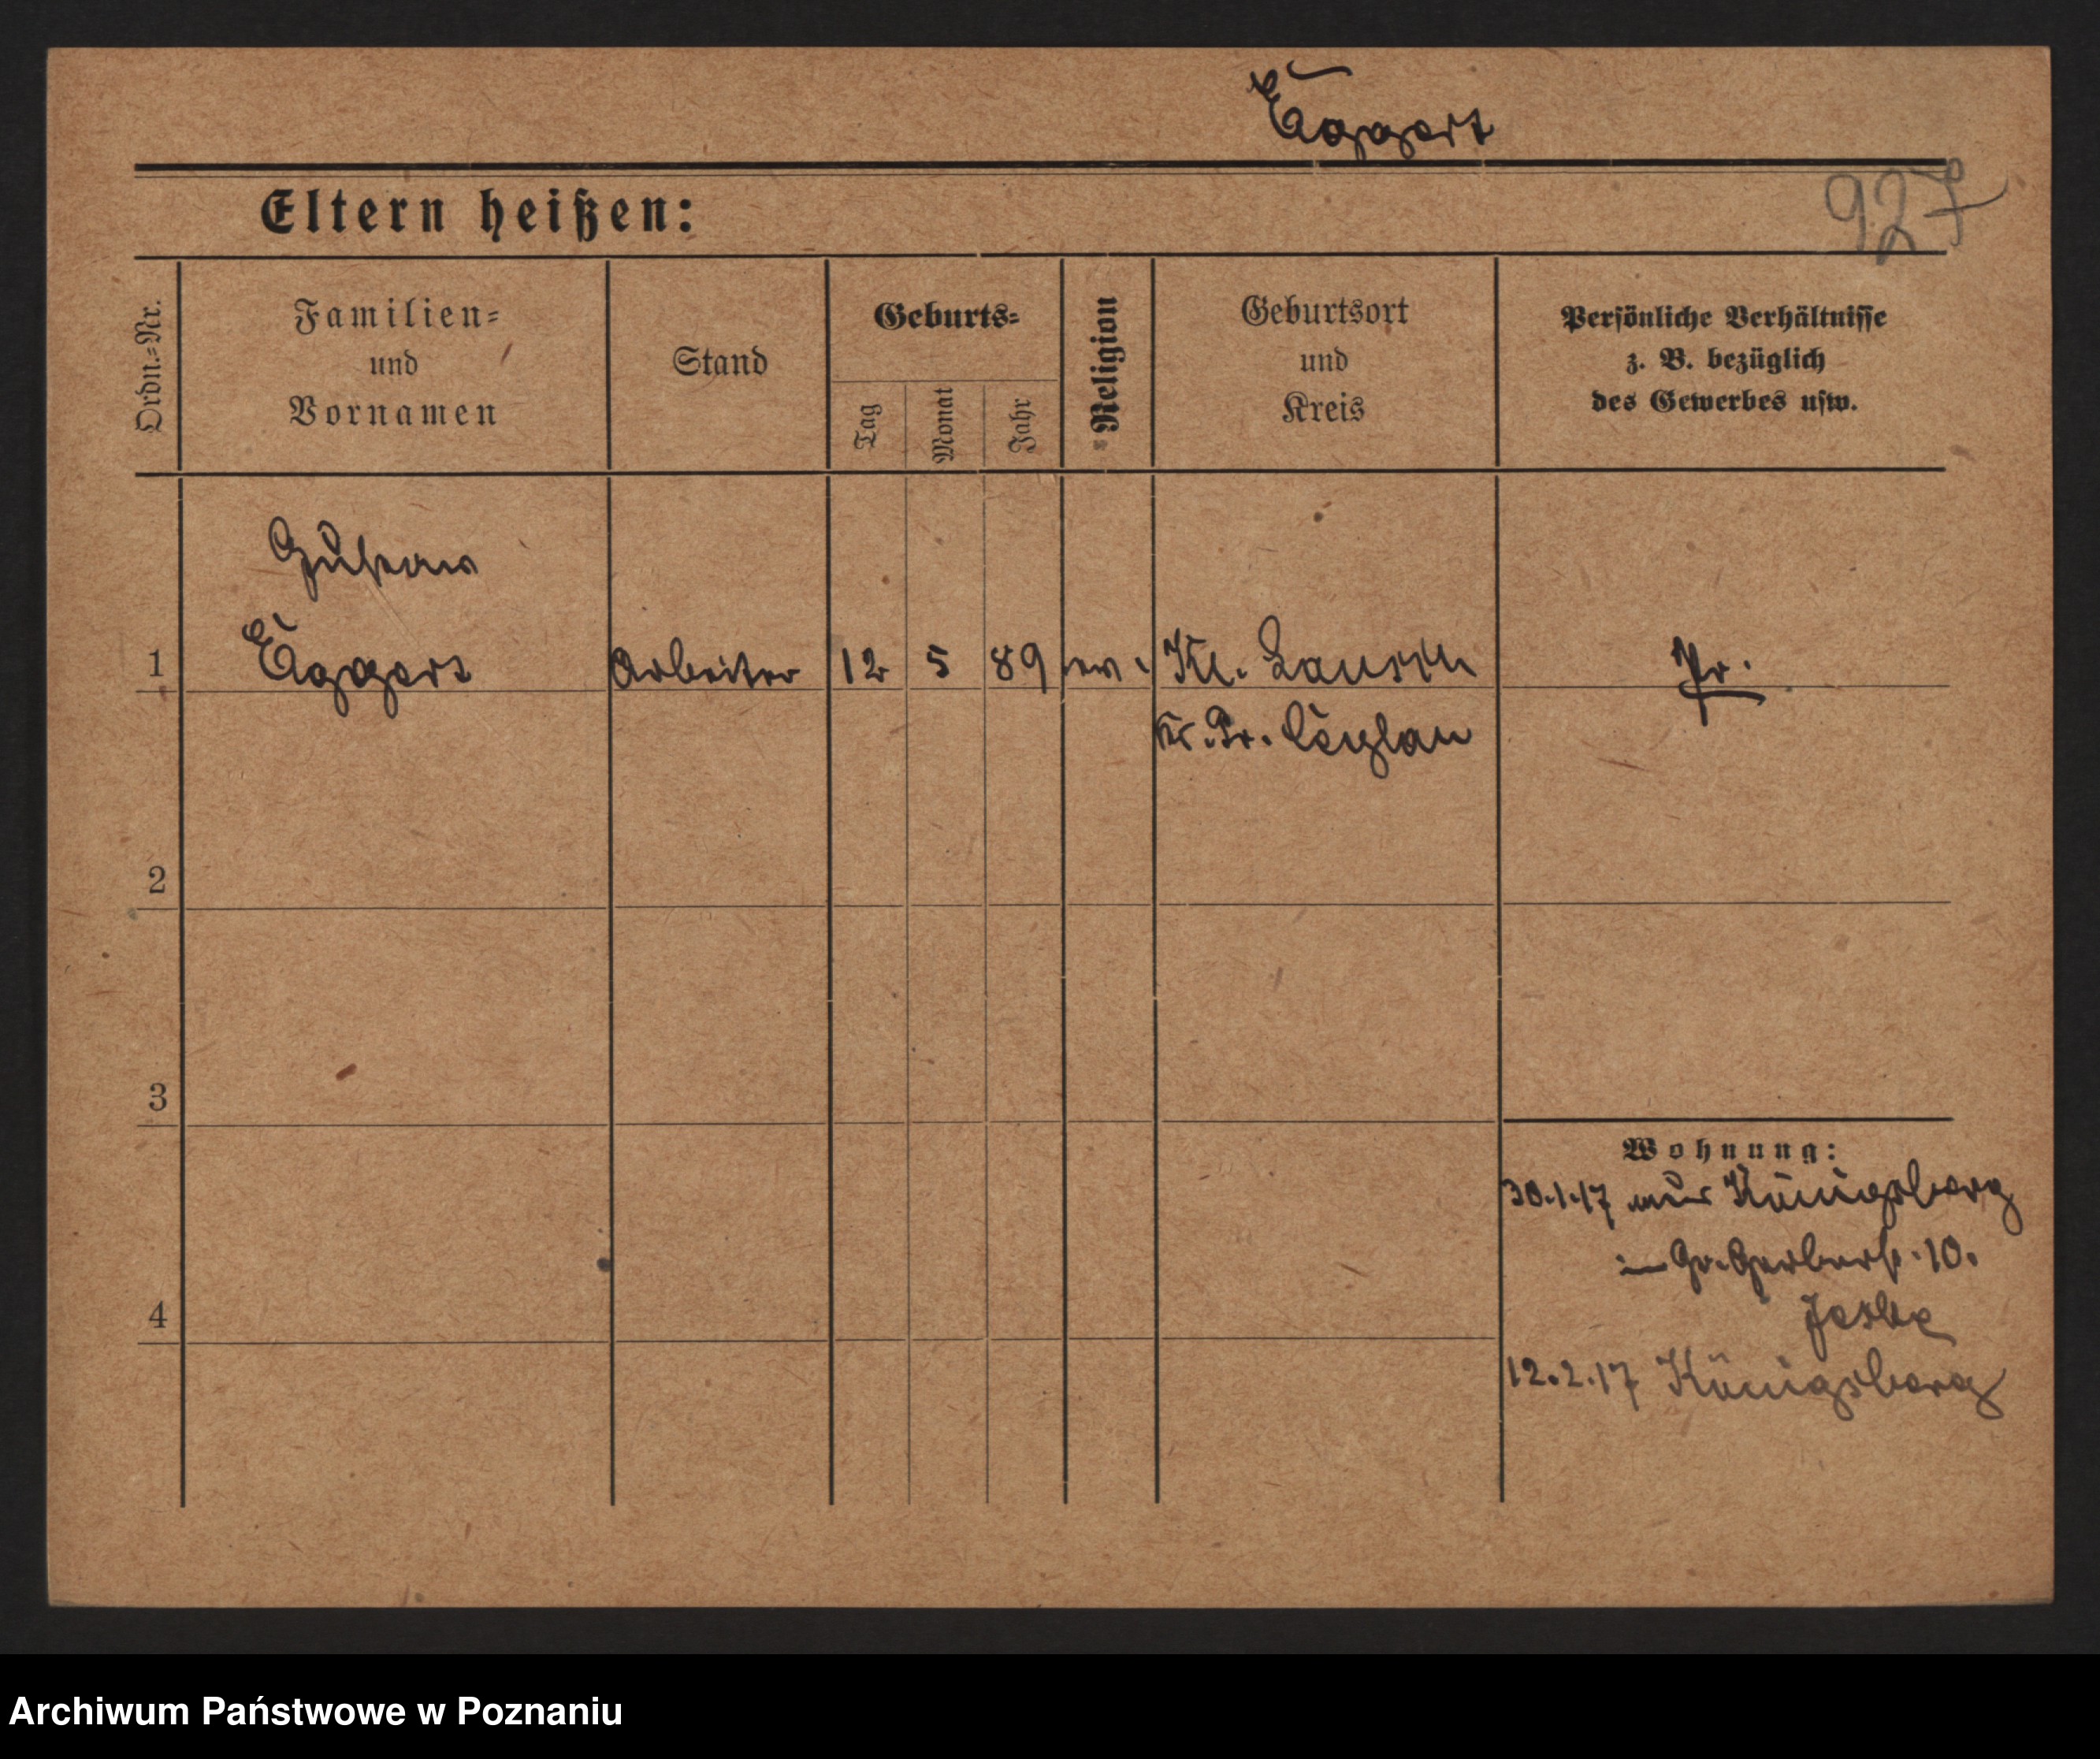 Eggert
927
Eltern heißen:
Ordn.=Nr.
Familien=
und
Vornamen
Stand
Geburts=
Tag
Monat
Jahr
Religion
Geburtsort
und
Kreis
Persönliche Verhältnisse
z. B. bezüglich
des Gewerbes usw.
Gustav
1 Eggert Arbeiter 12 5 89 ev. Kl. Lauth Pr.
Kr. Pr. Eylau
2
3
Wohnung:
30.1.17 aus Königsberg
in Gr. Gerberstr. 10.
4
12.2.17 Königsberg
Archiwum Państwowe w Poznaniu